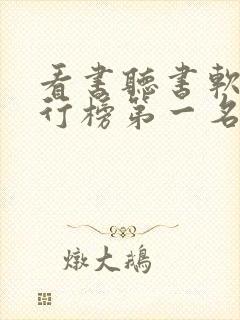 看書聽書軟
行榜第一名
燉大鵝